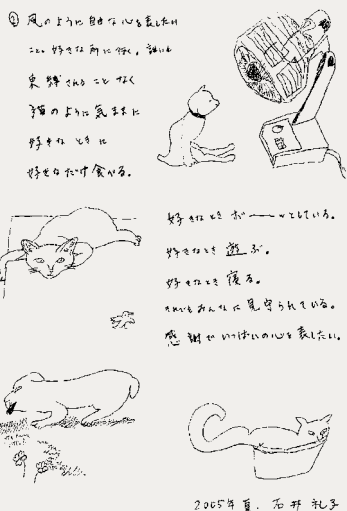 ② 風のように自由な心を表したい
こと。好きな所に行く。誰にも
束縛されることなく
猫のように気ままに
好きなときに
好きなだけ食べる。
好きなときボーーッとしている。
好きなとき遊ぶ。
好きなとき寝る。
それでもみんなに見守られている。
感謝でいっぱいの心を表したい。
2005年 夏. 石井 礼子